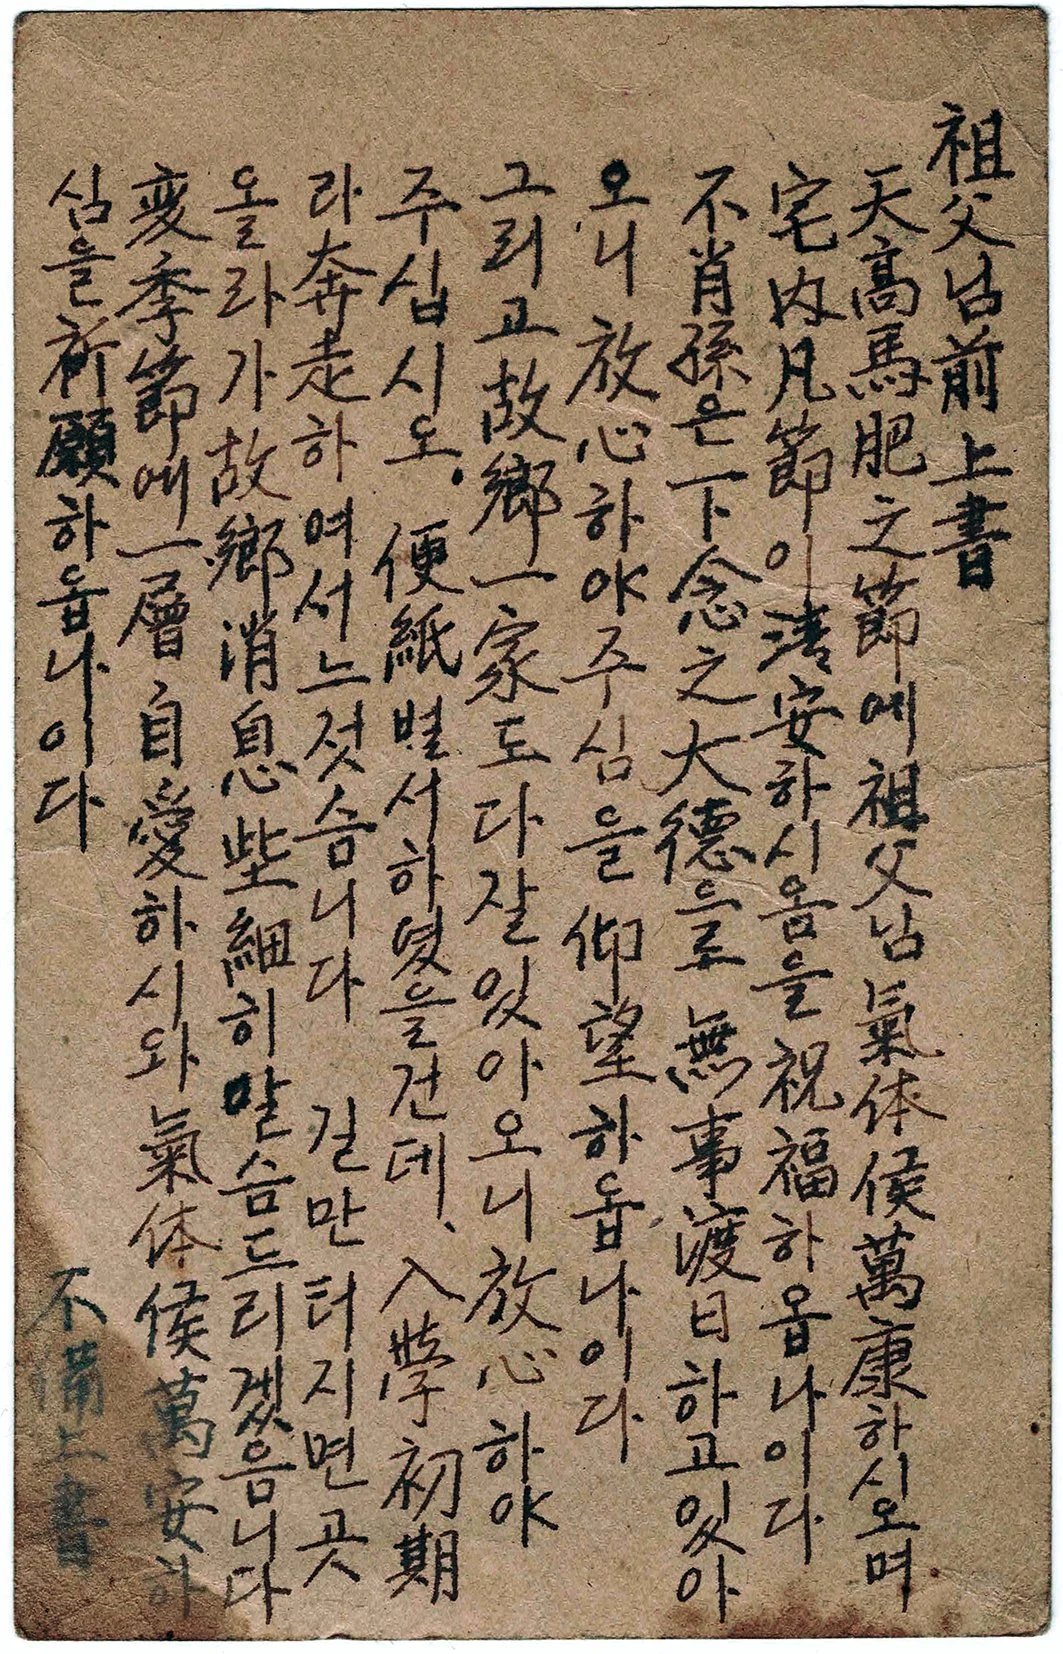 祖父님前 上書
天高馬肥之節에 祖父님 氣体候萬康하시오며
宅内凡節이 淸安하시옴을 祝福하옵나이다
不肖孫은 下念之大德으로 無事渡日하고있아
오니 放心하야 주심을 仰望하옵나이다
그리고 故鄕一家도 다 잘 있아오니 放心하야
주십시오. 便紙 벌서 하엿을 건데、入學初期
라 奔走하여서 느젓슴니다 길만 터지면 곳
올라가 故鄕消息 些細히 말슴드리겠음니다
変季節에 一層 自愛하시와 氣体候萬安하
심을 祈願하옵나이다
不備上書